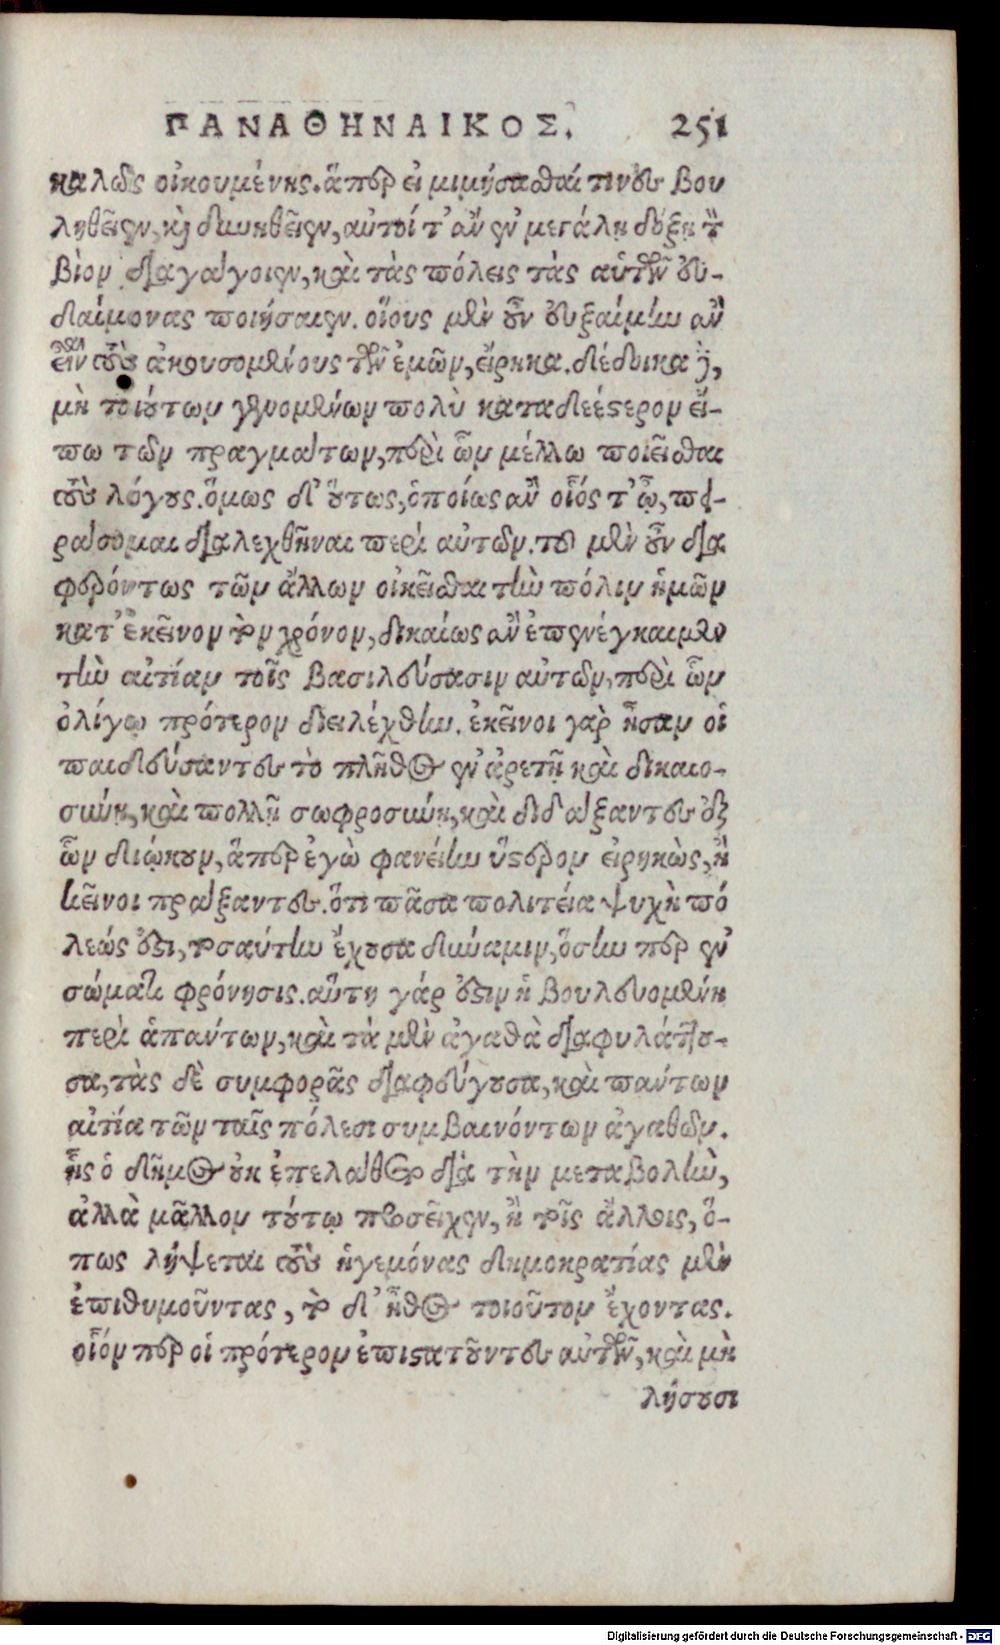 ΠΑΝΑΘΗΝΑΙΚΟΣ. 251
καλῶς οἰκουμένης. ἅπερ εἰ μιμήσασθαί τινες βου
ληθεῖεν, καὶ δυνηθεῖεν, αὐτοί τ' ἂν ἐν μεγάλῃ δόξῃ τὸν
βίον διαγάγοιεν, καὶ τὰς πόλεις τὰς αὑτῶν εὐ-
δαίμονας ποιήσαιεν. οἵους μὲν οὖν εὐξαίμην ἂν
εἶναι τοὺς ἀκουσομένους τῶν ἐμῶν, εἴρηκα. δέδοικα δὲ,
μὴ τοιούτων γενομένων πολὺ καταδεέστερον εἴ-
πω τῶν πραγμάτων, περὶ ὧν μέλλω ποιεῖσθαι
τοὺς λόγους. ὅμως δ' οὕτως, ὁποίως ἂν οἷός τ' ὦ, πει-
ράσομαι διαλεχθῆναι περὶ αὐτῶν. τοῦ μὲν οὖν δια
φερόντως τῶν ἄλλων οἰκεῖσθαι τὴν πόλιν ἡμῶν
κατ' ἐκεῖνον τὸν χρόνον, δικαίως ἂν ἐπενέγκαιμεν
τὴν αἰτίαν τοῖς βασιλεύσασιν αὐτῶν, περὶ ὧν
ὀλίγῳ πρότερον διειλέχθην. ἐκεῖνοι γὰρ ἦσαν οἱ
παιδεύσαντες τὸ πλῆθος ἐν ἀρετῇ καὶ δικαιο-
σύνῃ, καὶ πολλῇ σωφροσύνῃ, καὶ διδάξαντες ἐξ
ὧν διῴκουν, ἅπερ ἐγὼ φανείην ὕστερον εἰρηκὼς, ἢ
κεῖνοι πράξαντες. ὅτι πᾶσα πολιτεία ψυχὴ πό
λεώς ἐστι, τοσαύτην ἔχουσα δύναμιν, ὅσην περ ἐν
σώματι φρόνησις. αὕτη γάρ ἐστιν ἡ βουλευομένη
περὶ ἁπάντων, καὶ τὰ μὲν ἀγαθὰ διαφυλάττου-
σα, τὰς δὲ συμφορᾶς διαφεύγουσα, καὶ πάντων
αἰτία τῶν ταῖς πόλεσι συμβαινόντων ἀγαθῶν.
ἧς ὁ δῆμος οὐκ ἐπελάθετο διὰ τὴν μεταβολὴν,
ἀλλὰ μᾶλλον τούτῳ προσεῖχεν, ἢ τοῖς ἄλλοις, ὅ-
πως λήψεται τοὺς ἡγεμόνας δημοκρατίας μὲν
ἐπιθυμοῦντας, τὸ δ' ἦθος τοιοῦτον ἔχοντας.
οἷόν περ οἱ πρότερον ἐπιστατοῦντες αὐτῶν, καὶ μὴ
λήσουσι
Digitalisierung gefördert durch die Deutsche Forschungsgemeinschaft - DFG